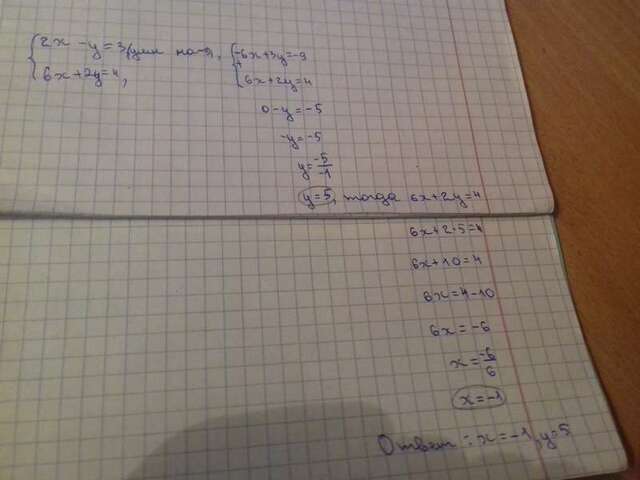 {2x - y = 3 |умн на -3, {-6x+3y=-9
{6x+2y=4, {6x+2y=4
0-y=-5
-y=-5
y=-5/-1
y=5, тогда 6x+2y=4
6x+2·5=4
6x+10=4
6x=4-10
6x=-6
x=-6/6
x=-1
Ответ: x=-1, y=5